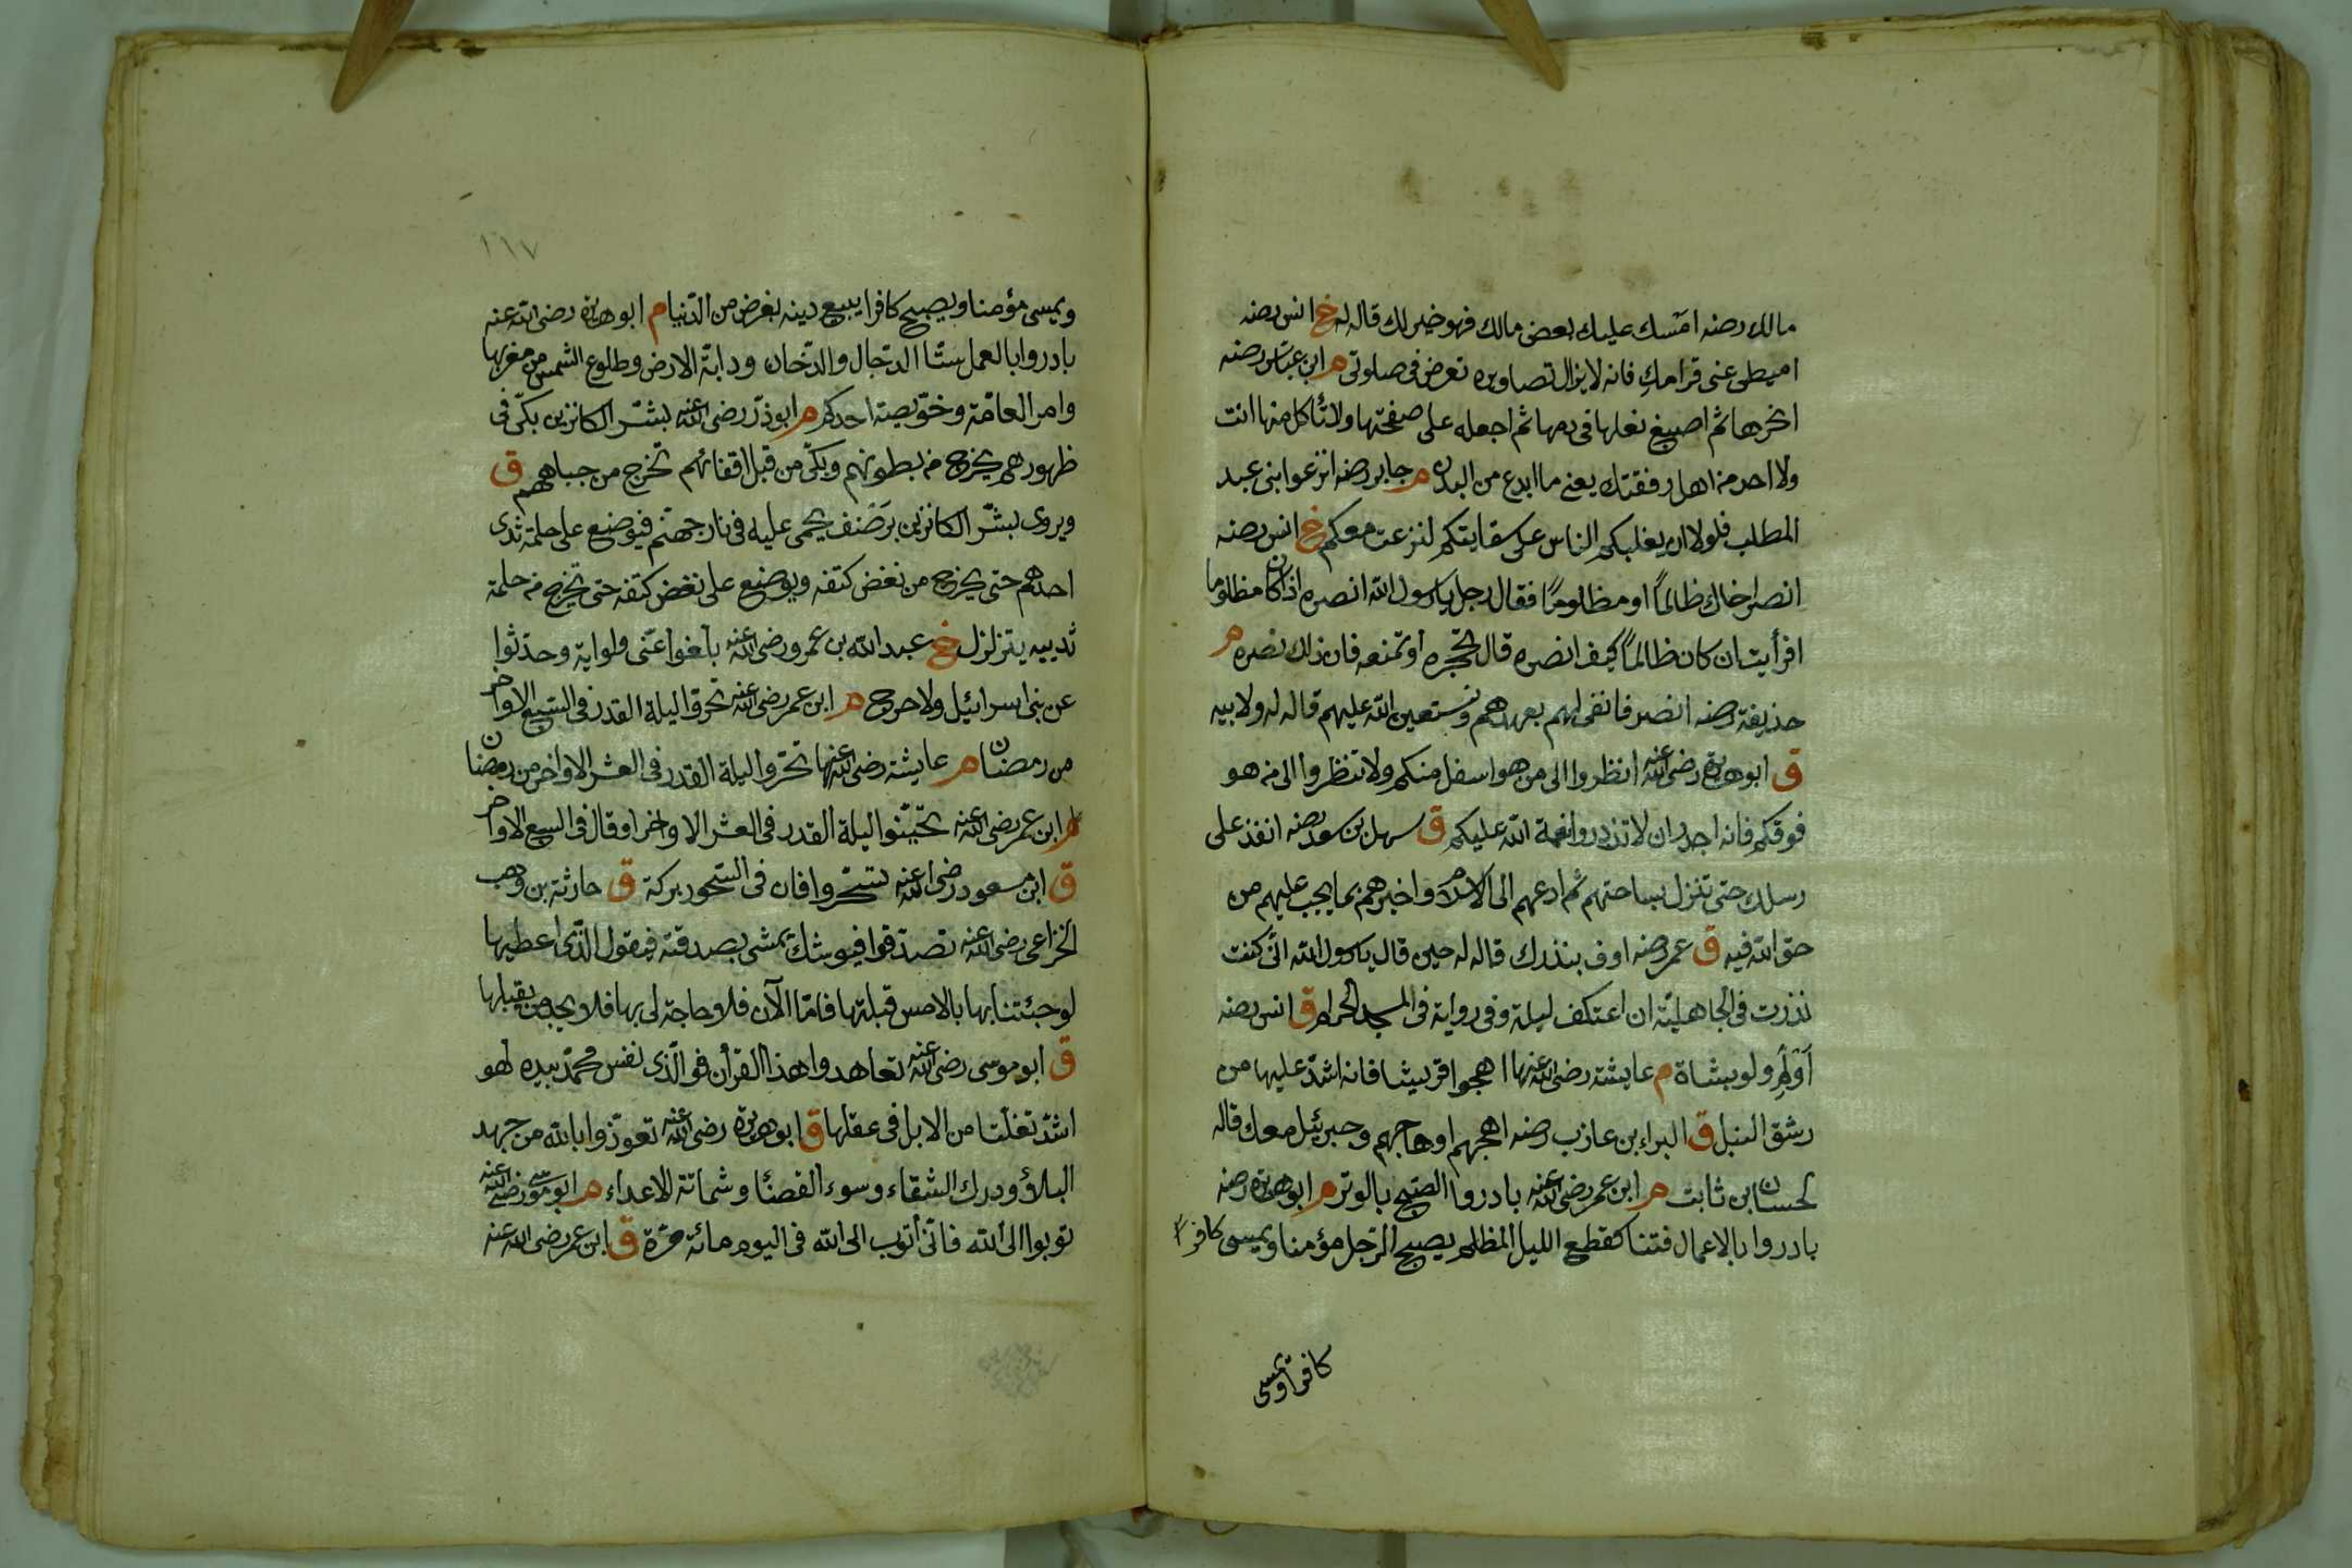 مالك رضه امسك عليك بعض مالك فهو خير لك قاله له خ انس رضه
اميطى عنى قرامك فانه لا يزال تصاويره تعرض فى صلوتى م ابن عباس رضه
انحرها ثم اصبغ نعلها فى دمها ثم اجعله على صفحتها ولا تأكل منها انت
ولا احد من اهل رفقتك يعنى ما ابدع من البدن م جابر رضه انزعوا بنى عبد
المطلب فلولا ان يغلبكم الناس على سقايتكم لنزعت معكم خ انس رضه
انصر اخاك ظالمًا او مظلومًا فقال رجل يا رسول الله انصره اذا كان مظلوما
افرأيت ان كان ظالمًا كيف انصره قال تحجزه او تمنعه فان ذلك نصره م
حذيفة رضه انصرفا نفى لهم بعهدهم ونستعين الله عليهم قاله له ولابيه
ق ابو هريرة رضى الله عنه انظروا الى من هو اسفل منكم ولا تنظروا الى من هو
فوقكم فانه اجدر ان لا تزدروا نعمة الله عليكم ق سهل بن سعد رضه انفذ على
رسلك حتى تنزل بساحتهم ثم ادعهم الى الاسلام واخبرهم بما يجب عليهم من
حق الله فيه ق عمر رضه اوف بنذرك قاله له حين قال يا رسول الله انى كنت
نذرت فى الجاهلية ان اعتكف ليلة وفى رواية فى المسجد الحرام ق انس رضه
اَوْلِمْ ولو بشاة م عايشة رضى الله عنها اهجوا قريشا فانه اشد عليها من
رشق النبل ق البراء بن عازب رضه اهجهم او هاجهم وجبريئل معك قاله
لحسان ابن ثابت م ابن عمر رضى الله عنه بادروا الصبح بالوتر م ابو هريرة رضه
بادروا بالاعمال فتنا كقطع الليل المظلم يصبح الرجل مؤمنا ويمسى كافرًا
كافرا ويمسى
١٦٧
ويمسى مؤمنا ويصبح كافرا يبيع دينه بغرض من الدنيا م ابو هريرة رضى الله عنه
بادروا بالعمل ستا الدجال والدخان ودابة الارض وطلوع الشمس من مغربها
وامر العامة وخويصة احدكم م ابو ذر رضى الله عنه بشر الكانزين بكى فى
ظهورهم يخرج من بطونهم وبكى من قبل اقفائهم تخرج من جباههم ق
ويروى بشر الكانزين برضف يحمى عليه فى نار جهنم فيوضع على حلمة ثدى
احدهم حتى يخرج من نغض كتفه ويوضع على نغض كتفه حتى يخرج من حلمة
ثدييه يتزلزل خ عبد الله بن عمرو رضى الله عنه بلغوا عنى ولو اية وحدثوا
عن بنى اسرائيل ولا حرج م ابن عمر رضى الله عنه تحروا ليلة القدر فى السبع الاواخر
من رمضان م عايشة رضى الله عنها تحروا ليلة القدر فى العشر الاواخر من رمضان
م ابن عمر رضى الله عنه تحينوا ليلة القدر فى العشر الاواخر او قال فى السبع الاواخر
ق ابن مسعود رضى الله عنه تسحروا فان فى السحور بركة ق حارثة بن وهب
الخزاعى رضى الله عنه تصدقوا فيوشك يمشى بصدقته فيقول الذى اعطيها
لو جئتنا بها بالامس قبلتها فاما الآن فلا حاجة لى بها فلا يجد من يقبلها
ق ابو موسى رضى الله عنه تعاهدوا هذا القرأن فوالذى نفس محمد بيده لهو
اشد تفلتا من الابل فى عقلها ق ابو هريرة رضى الله عنه تعوذوا بالله من جهد
البلاء ودرك الشقاء وسوء القضاء وشماتة الاعداء م ابو موسى رضى الله عنه
توبوا الى الله فانى أتوب الى الله فى اليوم مائة مرة ق ابن عمر رضى الله عنه